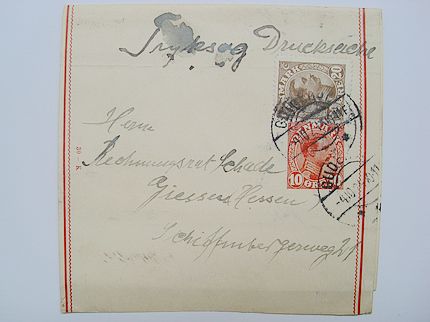 Tryksag Drucksache
Herrn
Rechnungsrat Schade
Giessen Hessen
Schiffenbergerweg 21
20
10
30 K